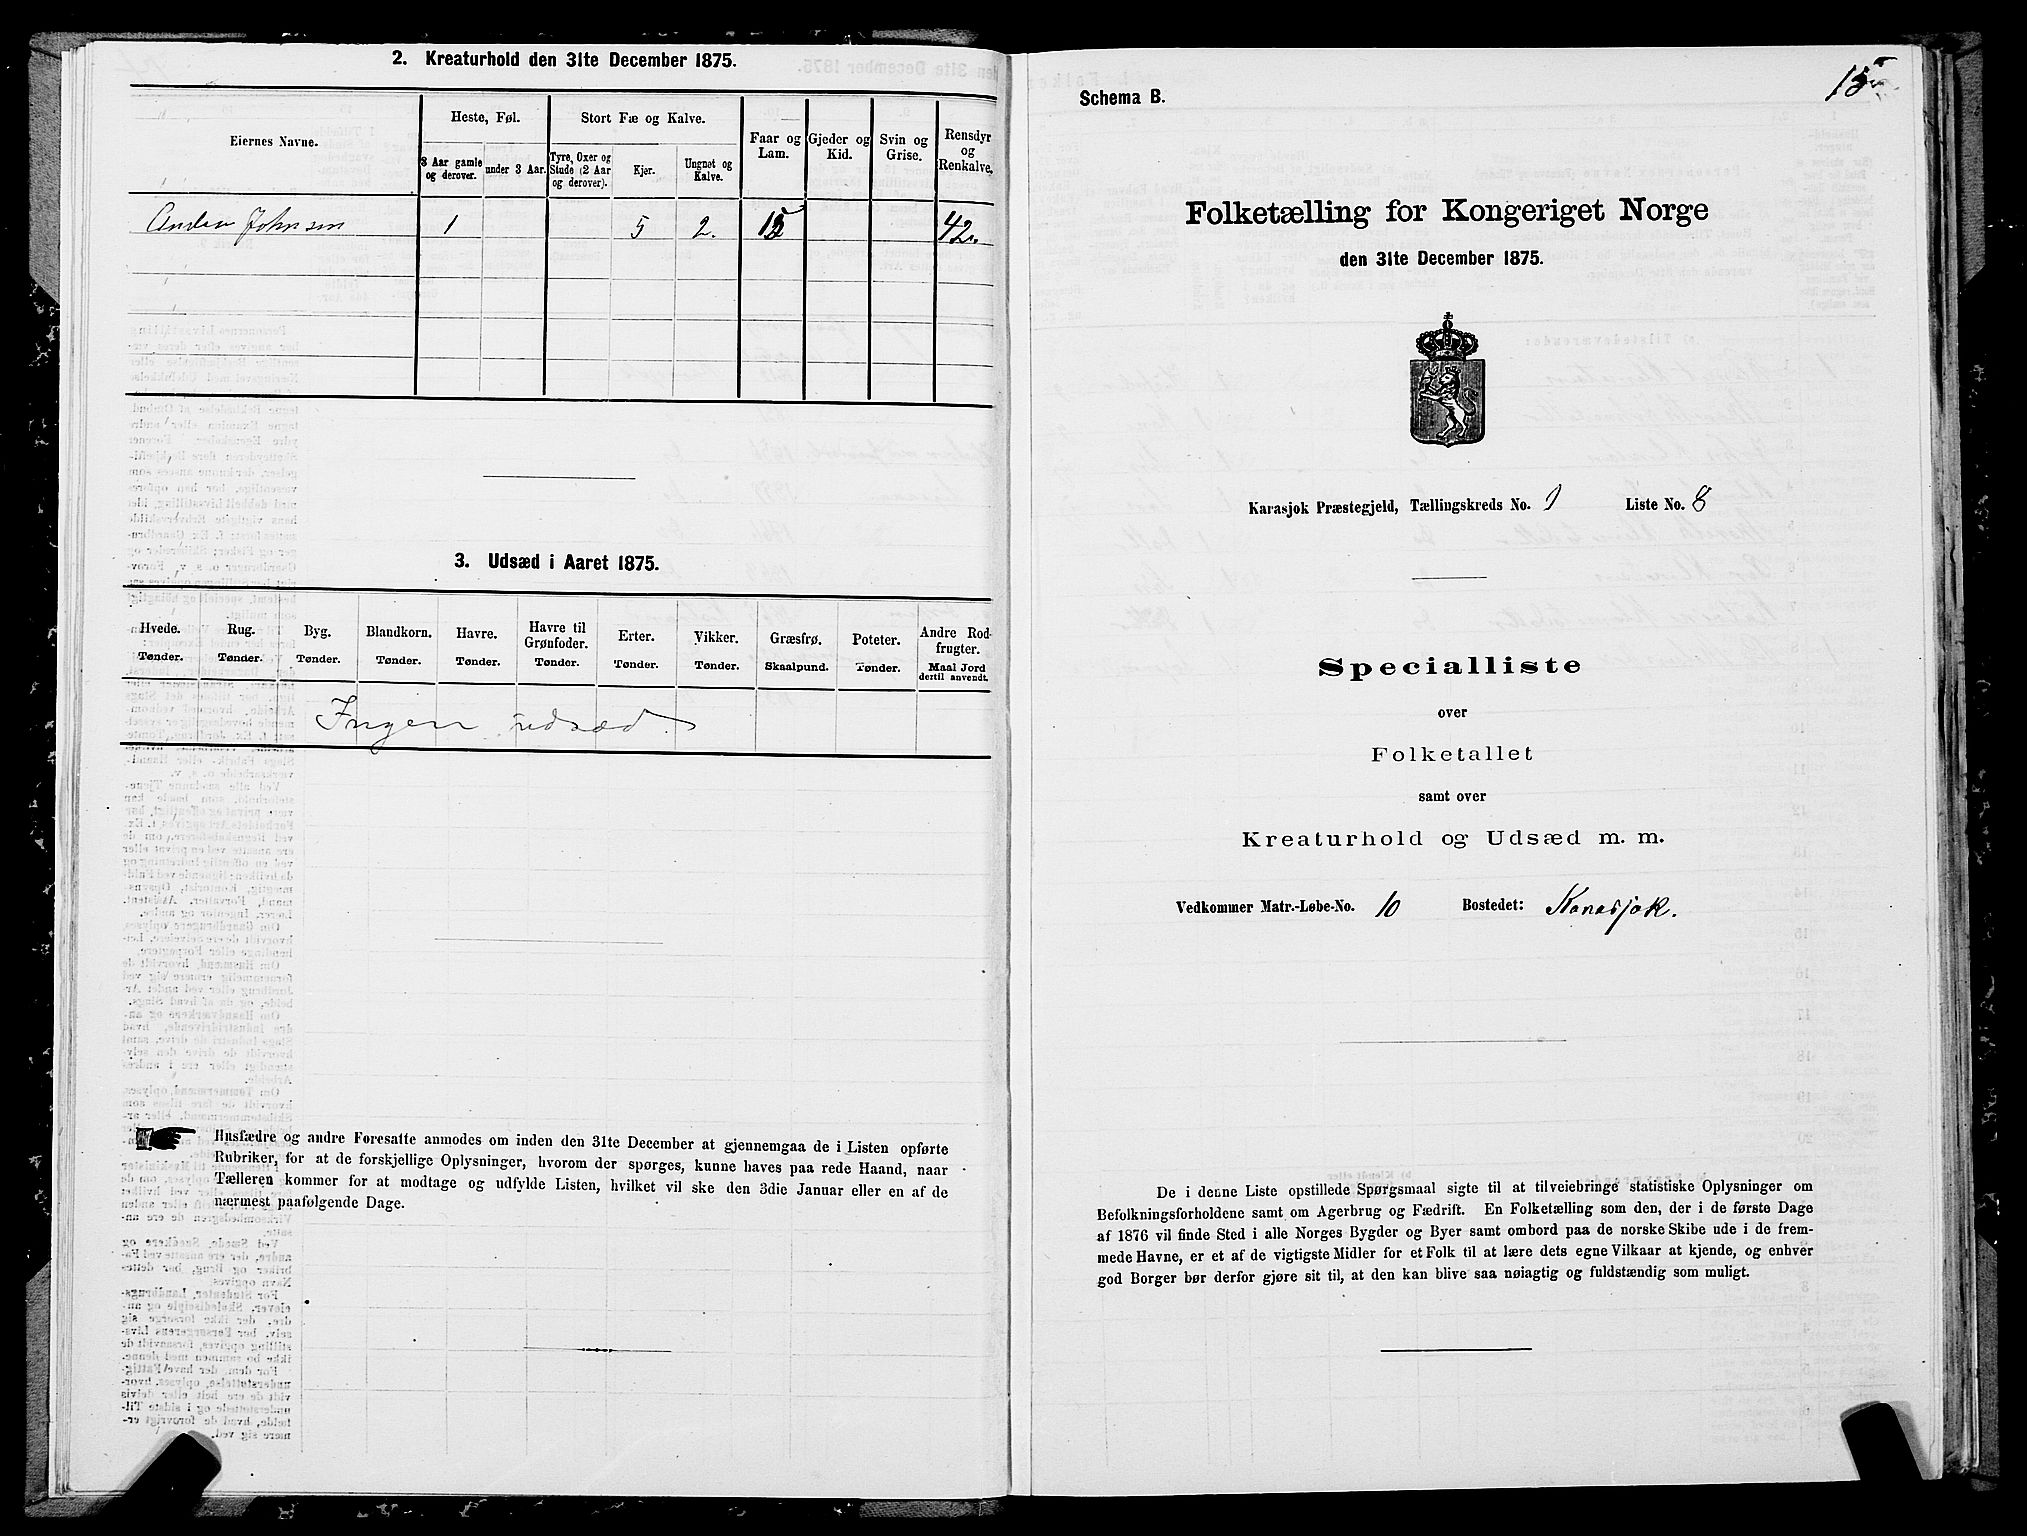 2. Kreaturhold den 31te December 1875.
Eiernes Navne.
Heste, Føl.
3 Aar gamle og derover.
under 3 Aar.
Stort Fæ og Kalve.
Tyre, Oxer og Stude (2 Aar og derover).
Kjør.
Ungnøt og Kalve.
Faar og Lam.
Gjeder og Kid.
Svin og Grise.
Rensdyr og Renkalve.
Johnsen 1 5 2. 42.
3. Udsæd i Aaret 1875.
Hvede. Tønder.
Rug. Tønder.
Byg. Tønder.
Blandkorn. Tønder.
Havre. Tønder.
Havre til Grønfoder. Tønder.
Erter. Tønder.
Vikker. Tønder.
Græsfrø. Skaalpund.
Poteter. Tønder.
Andre Rodfrugter. Maal Jord dertil anvendt.
Ingen udsæd.
Husfædre og andre Foresatte anmodes om inden den 31te December at gjennemgaa de i Listen opførte
Rubriker, for at de forskjellige Oplysninger, hvorom der spørges, kunne haves paa rede Haand, naar
Tælleren kommer for at modtage og udfylde Listen, hvilket vil ske den 3die Januar eller en af de
nærmest paafølgende Dage.
Schema B.
Folketælling for Kongeriget Norge
den 31te December 1875.
Karasjok Præstegjeld, Tællingskreds No. 1 Liste No. 8
Specialliste
over
Folketallet
samt over
Kreaturhold og Udsæd m. m.
Vedkommer Matr.-Løbe-No. 10 Bostedet: Karasjok.
De i denne Liste opstillede Spørgsmaal sigte til at tilveiebringe statistiske Oplysninger om
Befolkningsforholdene samt om Agerbrug og Fædrift. En Folketælling som den, der i de første Dage
af 1876 vil finde Sted i alle Norges Bygder og Byer samt ombord paa de norske Skibe ude i de frem-
mede Havne, er et af de vigtigste Midler for et Folk til at lære dets egne Vilkaar at kjende, og enhver
god Borger bør derfor gjøre sit til, at den kan blive saa nøiagtig og fuldstændig som muligt.